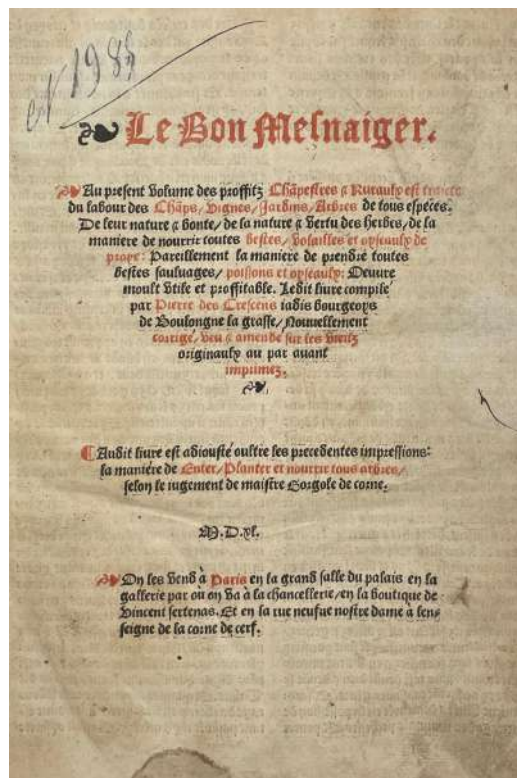 et 198
Le Bon Mesnaiger.
Au present volume des proffitz Chãpestres ⁊ Ruraulx est traicte
du labour des Chãps, Vignes/Jardins/Arbres de tous especes.
De leur nature ⁊ bonte/de la nature ⁊ vertu des herbes/de la
maniere de nourrir toutes bestes/volailles et oyseaulx de
proye: Pareillement la maniere de prendre toutes
bestes sauluages/poissons et oyseaulx: Oeuure
moult vtile et proffitable. Ledit liure compile
par Pierre des Crescens iadis bourgeoys
de Boulongne la grasse/Nouuellement
corrigé/veu ⁊ amende sur les vieilz
originaulx au par auant
imprimez.
Audit liure est adiousté oultre les precedentes impressions:
la maniére de Enter/Planter et nourrir tous arbres/
selon le iugement de maistre Gorgole de corne.
M.D.xl.
On les vend à Paris en la grand salle du palais en la
gallerie par où on va à la chancellerie/en la boutique de
Vincent sertenas. Et en la rue neufue nostre dame à lens
seigne de la corne de cerf.